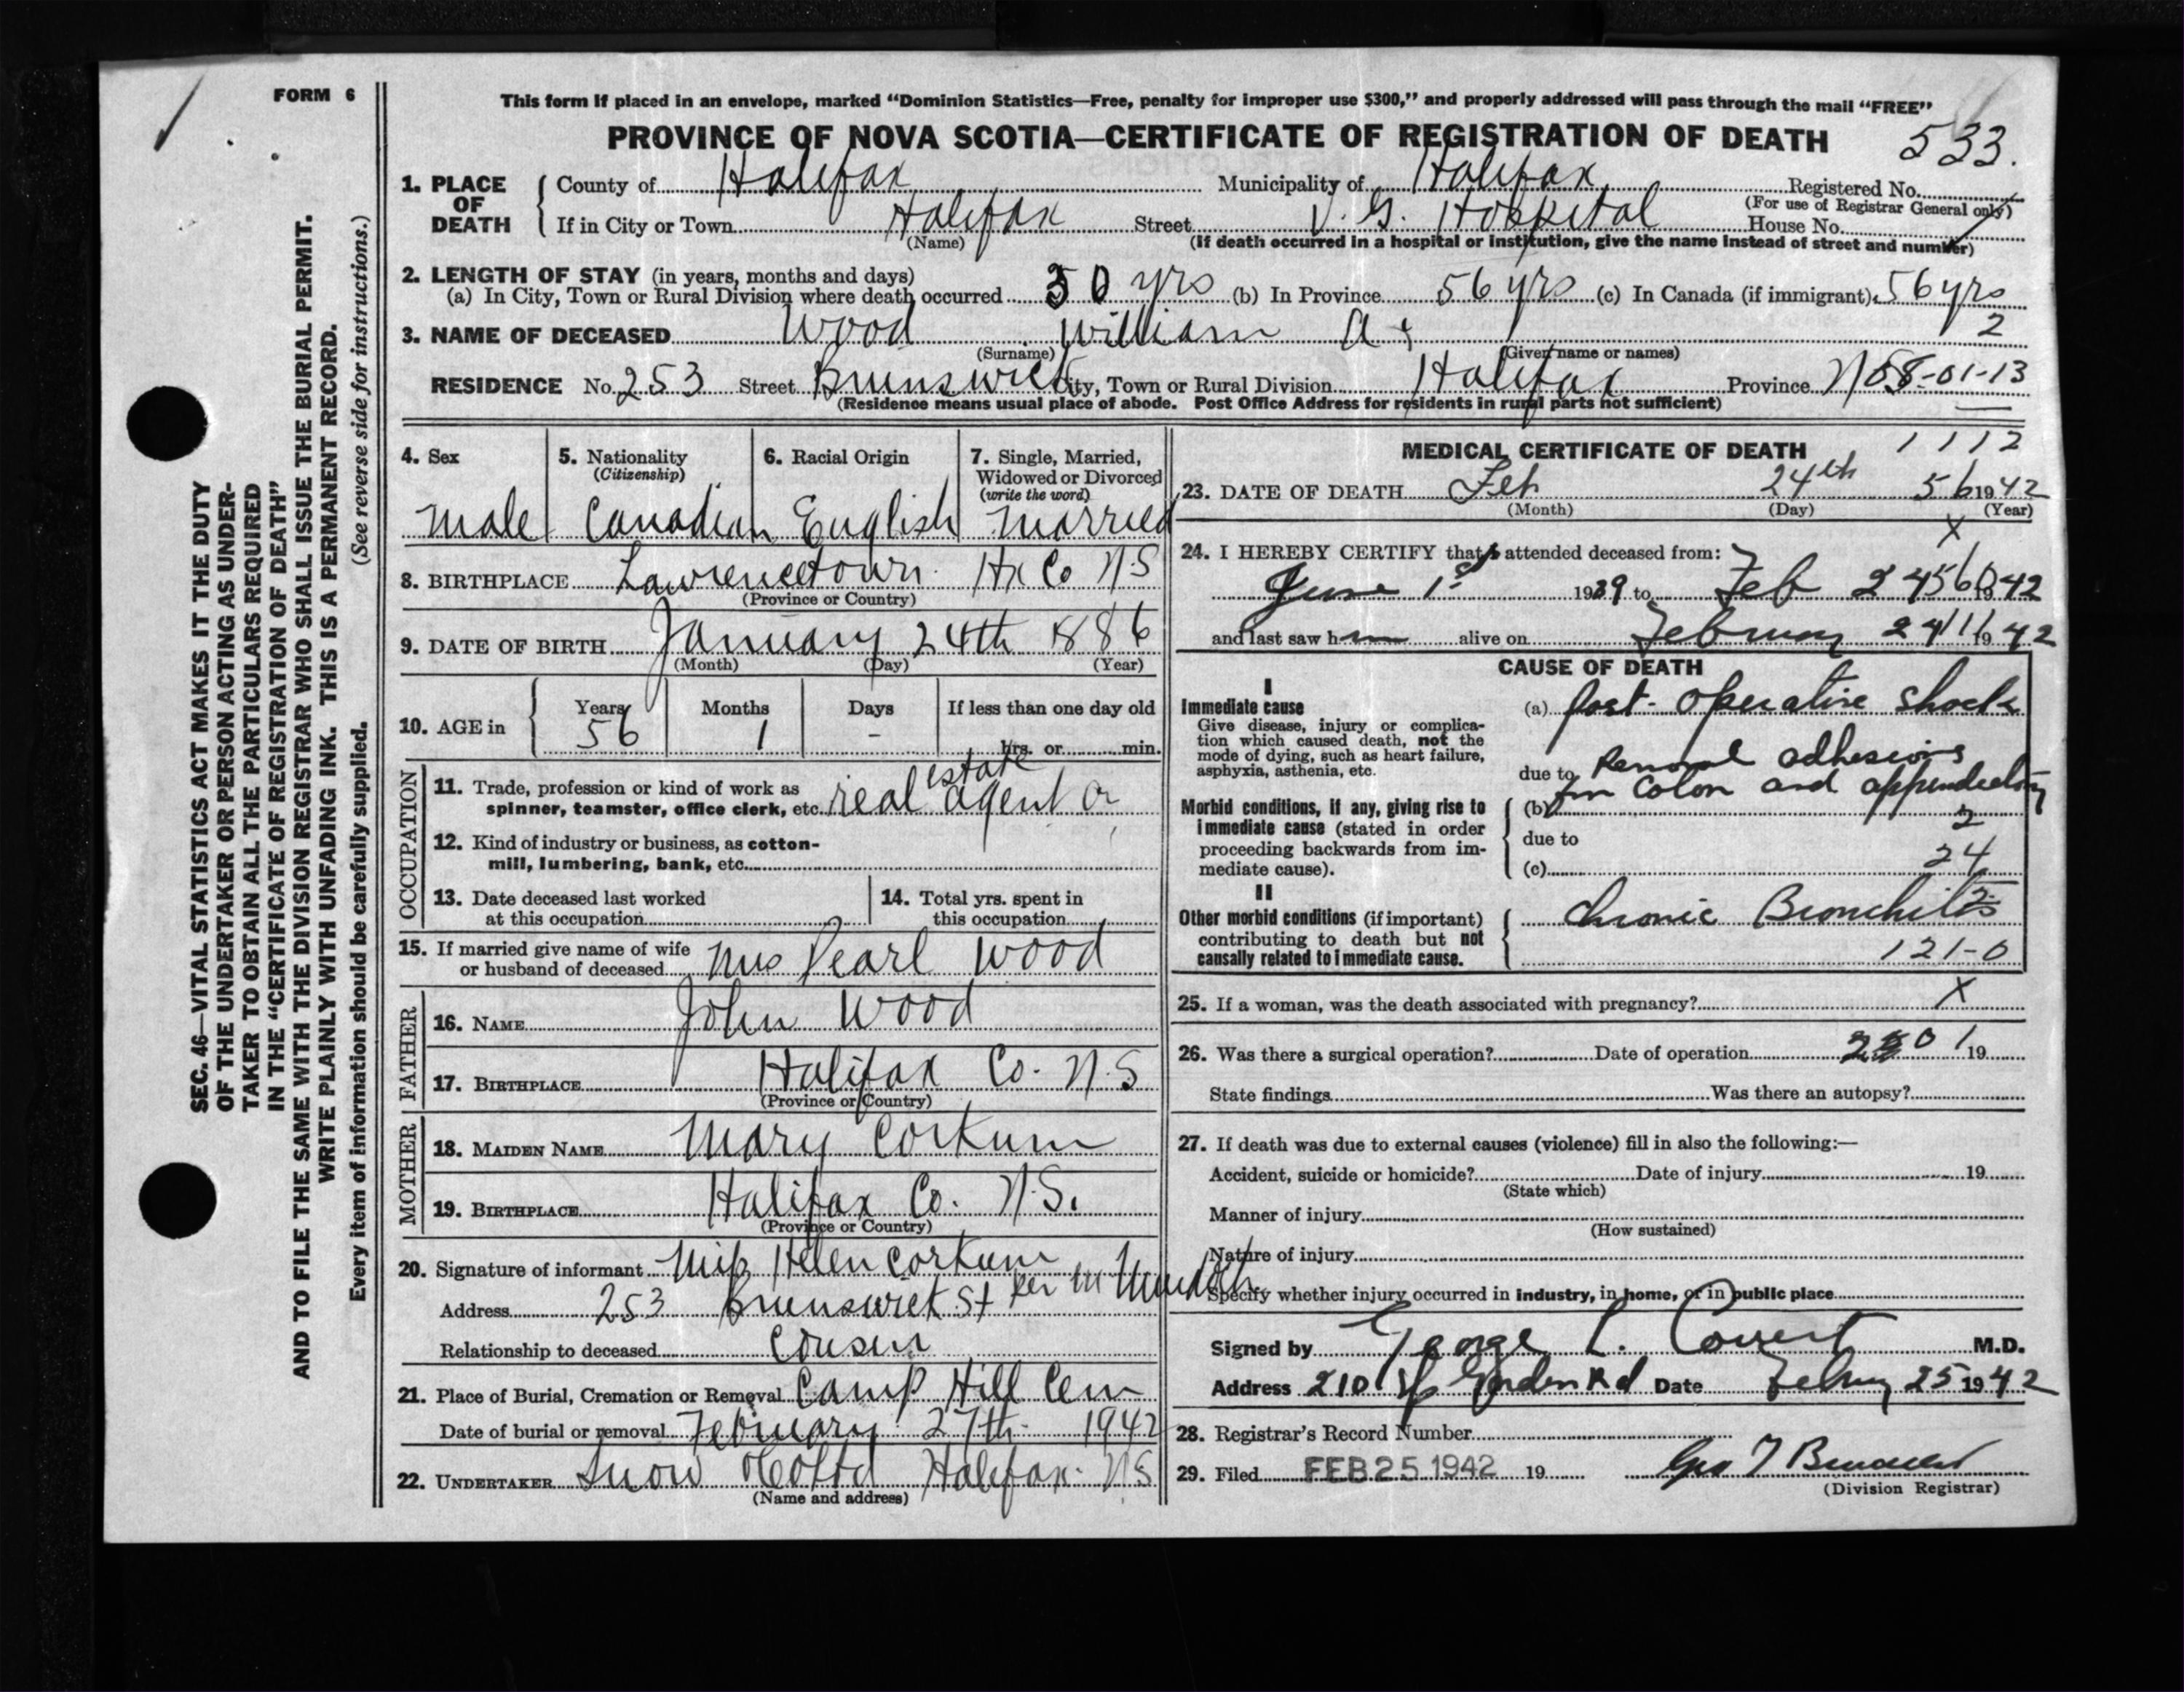 FORM 6
This form if placed in an envelope, marked “Dominion Statistics—Free, penalty for improper use $300,” and properly addressed will pass through the mail “FREE”
PROVINCE OF NOVA SCOTIA—CERTIFICATE OF REGISTRATION OF DEATH
533.
1. PLACE OF DEATH
County of Halifax Municipality of Halifax Registered No.
(For use of Registrar General only)
If in City or Town Halifax Street V. G. Hospital House No.
(Name) (If death occurred in a hospital or institution, give the name instead of street and number)
2. LENGTH OF STAY (in years, months and days)
(a) In City, Town or Rural Division where death occurred 30 yrs (b) In Province 56 yrs (c) In Canada (if immigrant) 56 yrs
2
3. NAME OF DECEASED Wood William A
(Surname) (Given name or names)
RESIDENCE No. 253 Street Brunswick City, Town or Rural Division Halifax Province NS 58-01-13
(Residence means usual place of abode. Post Office Address for residents in rural parts not sufficient)
4. Sex
male
5. Nationality
(Citizenship)
Canadian
6. Racial Origin
English
7. Single, Married,
Widowed or Divorced
(write the word)
married
8. BIRTHPLACE Lawrencetown Hx Co N S
(Province or Country)
9. DATE OF BIRTH January 24th 1886
(Month) (Day) (Year)
10. AGE in Years Months Days If less than one day old
56 1 - hrs. or min.
OCCUPATION
11. Trade, profession or kind of work as
spinner, teamster, office clerk, etc. real estate agent
12. Kind of industry or business, as cotton-
mill, lumbering, bank, etc.
13. Date deceased last worked
at this occupation
14. Total yrs. spent in
this occupation
15. If married give name of wife
or husband of deceased Mrs Pearl Wood
FATHER
16. NAME John Wood
17. BIRTHPLACE Halifax Co. N.S
(Province or Country)
MOTHER
18. MAIDEN NAME Mary Corkum
19. BIRTHPLACE Halifax Co. N.S.
(Province or Country)
20. Signature of informant Miss Helen Corkum
per M Murdoch
Address 253 Brunswick St
Relationship to deceased Cousin
21. Place of Burial, Cremation or Removal Camp Hill Cem
Date of burial or removal February 27th 1942
22. UNDERTAKER Snow & Co Ltd Halifax N S
(Name and address)
MEDICAL CERTIFICATE OF DEATH 1112
23. DATE OF DEATH Feb 24th 56 1942
(Month) (Day) (Year)
X
24. I HEREBY CERTIFY that I attended deceased from:
June 1st 1939 to Feb 24 56 1942
and last saw him alive on February 24 11 1942
CAUSE OF DEATH
I
Immediate cause
Give disease, injury or complica-
tion which caused death, not the
mode of dying, such as heart failure,
asphyxia, asthenia, etc.
(a) Post-Operative Shock
due to Removal adhesions
from Colon and appendectomy
Morbid conditions, if any, giving rise to
immediate cause (stated in order
proceeding backwards from im-
mediate cause).
(b)
2
due to
24
(c)
II
Other morbid conditions (if important)
contributing to death but not
causally related to immediate cause.
Chronic Bronchitis
121-0
25. If a woman, was the death associated with pregnancy? X
26. Was there a surgical operation? Date of operation 01 19
State findings Was there an autopsy?
27. If death was due to external causes (violence) fill in also the following:—
Accident, suicide or homicide? Date of injury 19
(State which)
Manner of injury
(How sustained)
Nature of injury
Specify whether injury occurred in industry, in home, or in public place
Signed by George L. Covert M.D.
Address 210 Sp Garden Rd Date Febry 25 1942
28. Registrar's Record Number
29. Filed FEB 25 1942 19 Geo
(Division Registrar)
SEC. 46—VITAL STATISTICS ACT MAKES IT THE DUTY
OF THE UNDERTAKER OR PERSON ACTING AS UNDER-
TAKER TO OBTAIN ALL THE PARTICULARS REQUIRED
IN THE “CERTIFICATE OF REGISTRATION OF DEATH”
AND TO FILE THE SAME WITH THE DIVISION REGISTRAR WHO SHALL ISSUE THE BURIAL PERMIT.
WRITE PLAINLY WITH UNFADING INK. THIS IS A PERMANENT RECORD.
Every item of information should be carefully supplied. (See reverse side for instructions.)